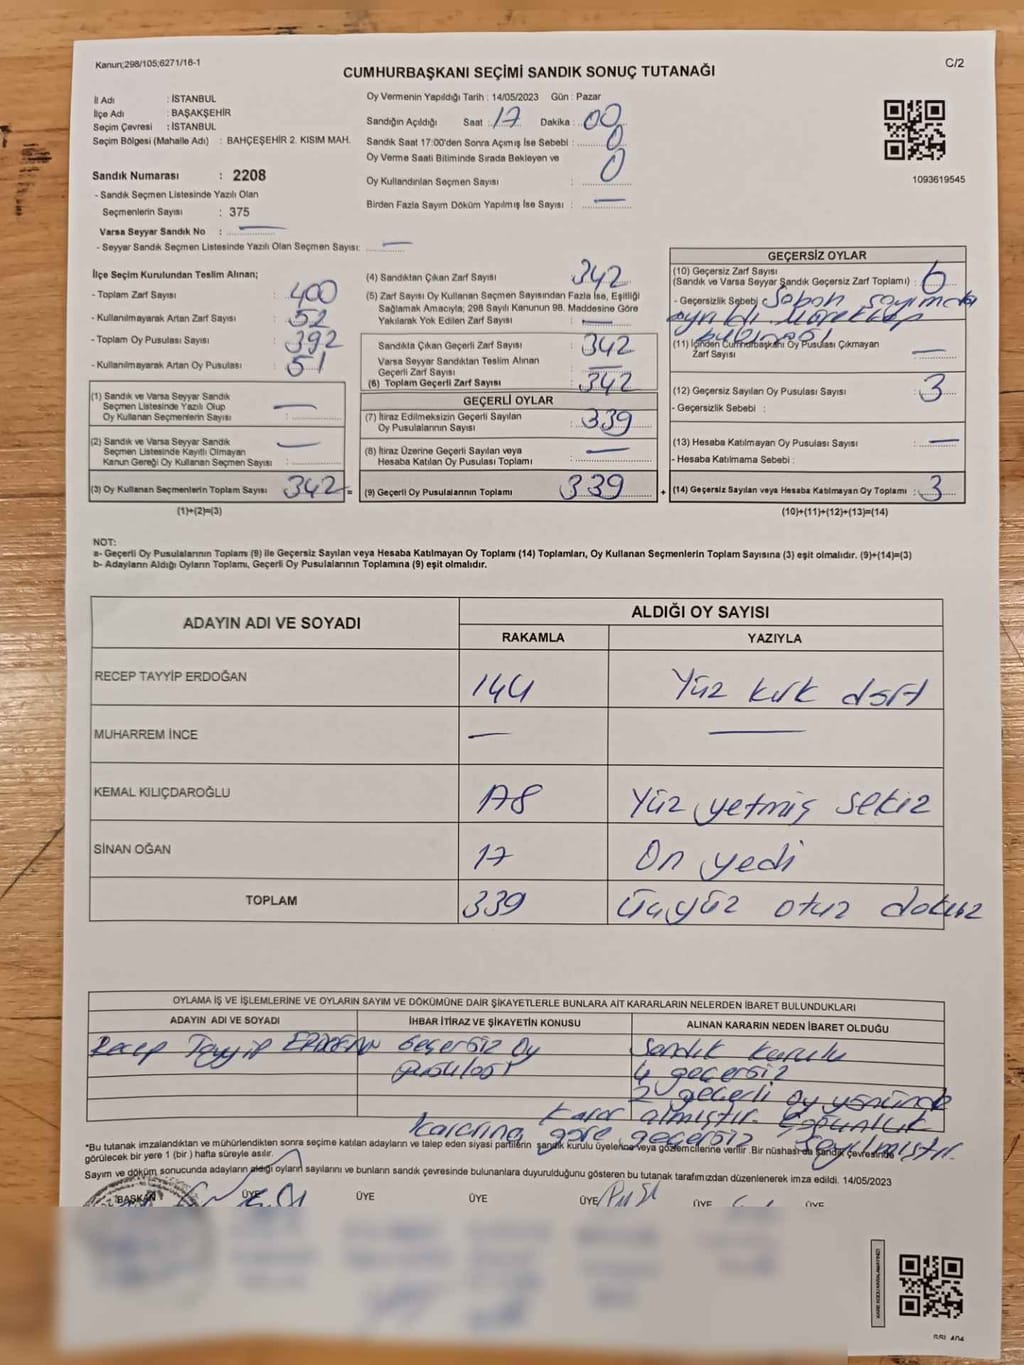 Kanun;298/105;6271/16-1
C/2
CUMHURBAŞKANI SEÇİMİ SANDIK SONUÇ TUTANAĞI
İl Adı : İSTANBUL
İlçe Adı : BAŞAKŞEHİR
Seçim Çevresi : İSTANBUL
Seçim Bölgesi (Mahalle Adı) : BAHÇEŞEHİR 2. KISIM MAH.
Sandık Numarası : 2208
- Sandık Seçmen Listesinde Yazılı Olan
Seçmenlerin Sayısı : 375
Varsa Seyyar Sandık No : —
- Seyyar Sandık Seçmen Listesinde Yazılı Olan Seçmen Sayısı: —
Oy Vermenin Yapıldığı Tarih : 14/05/2023 Gün : Pazar
Sandığın Açıldığı Saat : 17 Dakika : 00
Sandık Saat 17:00'den Sonra Açımış İse Sebebi : 0
Oy Verme Saati Bitiminde Sırada Bekleyen ve
Oy Kullandırılan Seçmen Sayısı : 0
Birden Fazla Sayım Döküm Yapılmış İse Sayısı : —
1093619545
İlçe Seçim Kurulundan Teslim Alınan;
- Toplam Zarf Sayısı : 400
- Kullanılmayarak Artan Zarf Sayısı : 52
- Toplam Oy Pusulası Sayısı : 392
- Kullanılmayarak Artan Oy Pusulası : 51
(1) Sandık ve Varsa Seyyar Sandık
Seçmen Listesinde Yazılı Olup
Oy Kullanan Seçmenlerin Sayısı : —
(2) Sandık ve Varsa Seyyar Sandık
Seçmen Listesinde Kayıtlı Olmayan
Kanun Gereği Oy Kullanan Seçmen Sayısı : —
(3) Oy Kullanan Seçmenlerin Toplam Sayısı : 342 =
(1)+(2)=(3)
(4) Sandıktan Çıkan Zarf Sayısı 342
(5) Zarf Sayısı Oy Kullanan Seçmen Sayısından Fazla İse, Eşitliği
Sağlamak Amacıyla, 298 Sayılı Kanunun 98. Maddesine Göre
Yakılarak Yok Edilen Zarf Sayısı : —
Sandıkta Çıkan Geçerli Zarf Sayısı : 342
Varsa Seyyar Sandıktan Teslim Alınan
Geçerli Zarf Sayısı : —
(6) Toplam Geçerli Zarf Sayısı : 342
GEÇERLİ OYLAR
(7) İtiraz Edilmeksizin Geçerli Sayılan
Oy Pusulalarının Sayısı : 339
(8) İtiraz Üzerine Geçerli Sayılan veya
Hesaba Katılan Oy Pusulası Toplamı : —
(9) Geçerli Oy Pusulalarının Toplamı : 339 +
GEÇERSİZ OYLAR
(10) Geçersiz Zarf Sayısı
(Sandık ve Varsa Seyyar Sandık Geçersiz Zarf Toplamı) : 6
- Geçersizlik Sebebi : Sabah sayımda
ayrıldı Mürekkep
(11) İçinden Cumhurbaşkanı Oy Pusulası Çıkmayan
Zarf Sayısı : —
(12) Geçersiz Sayılan Oy Pusulası Sayısı : 3
- Geçersizlik Sebebi :
(13) Hesaba Katılmayan Oy Pusulası Sayısı : —
- Hesaba Katılmama Sebebi :
(14) Geçersiz Sayılan veya Hesaba Katılmayan Oy Toplamı : 3
(10)+(11)+(12)+(13)=(14)
NOT:
a- Geçerli Oy Pusulalarının Toplamı (9) ile Geçersiz Sayılan veya Hesaba Katılmayan Oy Toplamı (14) Toplamları, Oy Kullanan Seçmenlerin Toplam Sayısına (3) eşit olmalıdır. (9)+(14)=(3)
b- Adayların Aldığı Oyların Toplamı, Geçerli Oy Pusulalarının Toplamına (9) eşit olmalıdır.
ADAYIN ADI VE SOYADI
ALDIĞI OY SAYISI
RAKAMLA YAZIYLA
RECEP TAYYİP ERDOĞAN 144 Yüz kırk dört
MUHARREM İNCE — —
KEMAL KILIÇDAROĞLU 178 Yüz yetmiş sekiz
SİNAN OĞAN 17 On yedi
TOPLAM 339 üçyüz otuz dokuz
OYLAMA İŞ VE İŞLEMLERİNE VE OYLARIN SAYIM VE DÖKÜMÜNE DAİR ŞİKAYETLERLE BUNLARA AİT KARARLARIN NELERDEN İBARET BULUNDUKLARI
ADAYIN ADI VE SOYADI İHBAR İTİRAZ VE ŞİKAYETİN KONUSU ALINAN KARARIN NEDEN İBARET OLDUĞU
Recep Tayyip ERDOĞAN Geçersiz Oy pusulası
Sandık kurulu
4 geçersiz
2 geçerli oy yönünde
karar almıştır. Çoğunluk
kararına göre geçersiz sayılmıştır.
*Bu tutanak imzalandıktan ve mühürlendikten sonra seçime katılan adayların ve talep eden siyasi partilerin sandık kurulu üyelerine veya gözlemcilerine verilir. Bir nüshası da sandık çevresinde
görülecek bir yere 1 (bir ) hafta süreyle asılır.
Sayım ve döküm sonucunda adayların aldığı oyların sayılarını ve bunların sandık çevresinde bulunanlara duyurulduğunu gösteren bu tutanak tarafımızdan düzenlenerek imza edildi. 14/05/2023
BAŞKAN ÜYE ÜYE ÜYE ÜYE ÜYE ÜYE